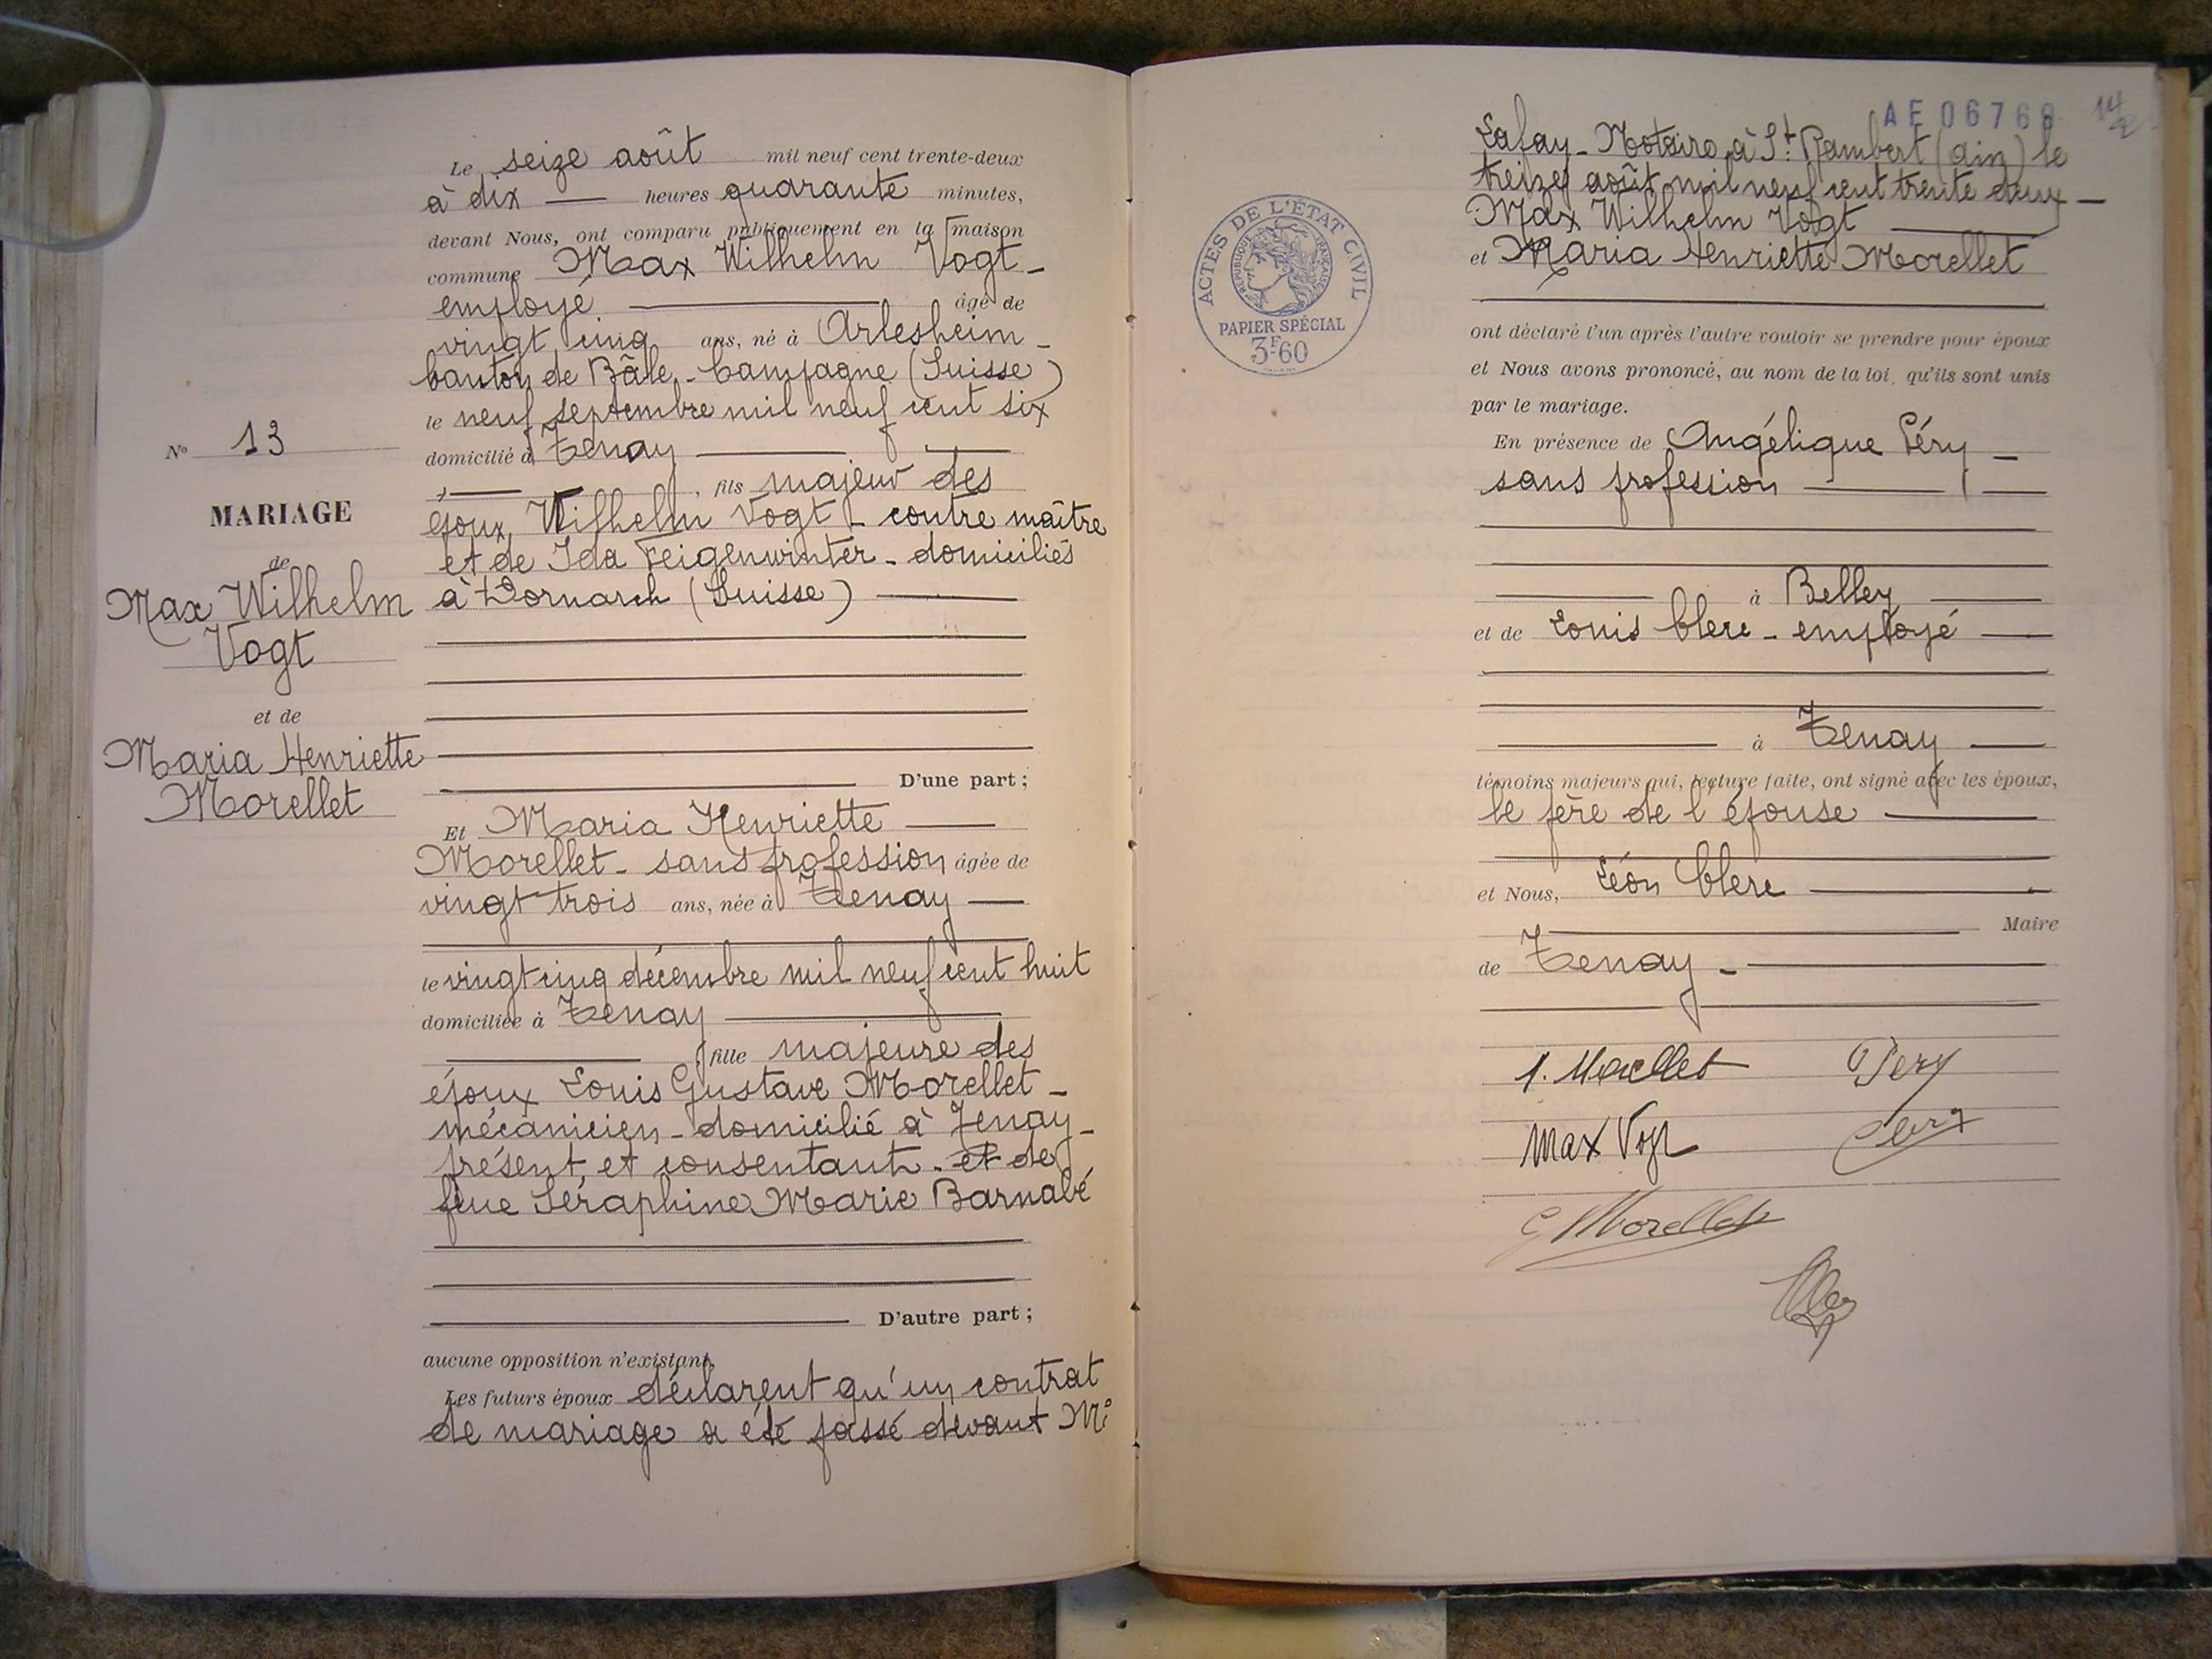 Le seize août mil neuf cent trente-deux
à dix heures quarante minutes,
devant Nous, ont comparu publiquement en la maison
commune Max Wilhelm Vogt -
employé âgé de
vingt cinq ans, né à Arlesheim -
Canton de Bâle - Campagne (Suisse)
le neuf septembre mil neuf cent six
domicilié à Tenay
, fils majeur des
époux Wilhelm Vogt - contre maître
et de Ida Feigenwinter - domiciliés
à Dornarch (Suisse)
D'une part ;
Et Maria Henriette
Morellet - sans profession âgée de
vingt trois ans, née à Tenay
le vingt cinq décembre mil neuf cent huit
domiciliée à Tenay
fille majeure des
époux Louis Gustave Morellet -
mécanicien - domicilié à Tenay -
présent, et consentant - et de
feue Séraphine Marie Barnabé
D'autre part ;
aucune opposition n'existant,
Les futurs époux déclarent qu'un contrat
de mariage a été passé devant Me
N° 13
MARIAGE
de
Max Wilhelm
Vogt
et de
Maria Henriette
Morellet
AE 06768
Lafay - Notaire à St Rambert (Ain) le
treize août mil neuf cent trente deux -
Max Wilhelm Vogt
et Maria Henriette Morellet
ont déclaré l'un après l'autre vouloir se prendre pour époux
et Nous avons prononcé, au nom de la loi, qu'ils sont unis
par le mariage.
En présence de Angélique Péry -
sans profession
à Belley
et de Louis Clerc - employé
à Tenay
témoins majeurs qui, lecture faite, ont signé avec les époux,
le père de l'épouse
et Nous, Léon Clerc
Maire
de Tenay -
Morellet Pery
Max Vogt
G Morellet
ACTES DE L'ÉTAT CIVIL
RÉPUBLIQUE FRANÇAISE
PAPIER SPÉCIAL
3F60